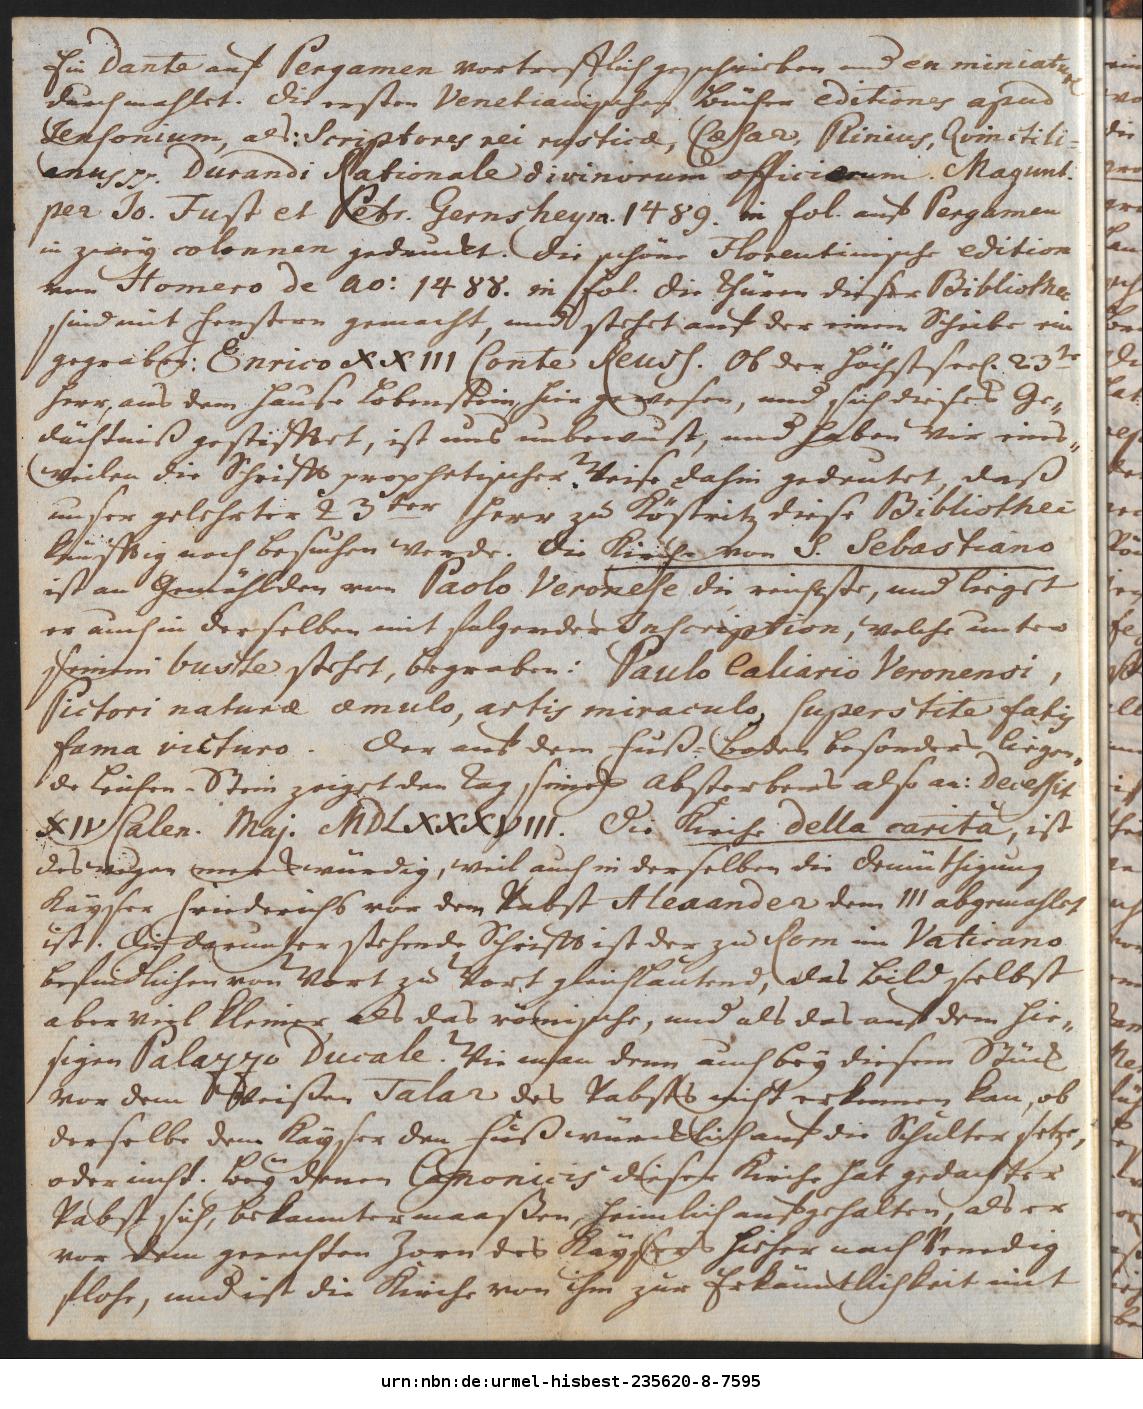 Ein Dante auf Pergamen vortrefflich geschrieben und en miniature
durchmahlet. Die ersten Venetianischen Bücher editiones apud
Jensonium, als: Scriptores rei rusticæ, Cæsar, Plinius, Quinctili=
anus pp. Durandi Rationale divinorum officiorum. Magunt.
per Jo. Fust et Petr. Gernsheym. 1489. in fol. auf Pergamen
in zweÿ colonnen gedruckt. Die schöne Florentinische edition
von Homero de ao: 1488. in fol. Die Thüren dieser Bibliothec
sind mit Fenstern gemacht, und stehet auf der einen Scheibe ein
gegraben: Enrico XXIII Conte Reuss. Ob der Höchstseel. 23te
Herr, aus dem Hause Lobenstein, hier gewesen, und sich dieses Ge„
dächtniß gestifftet, ist uns unbewust, und haben wir eins„
weilen die Schrifft prophetischer Weise dahin gedeutet, daß
unser gelehrter 23ter Herr zu Köstritz diese Bibliothec
künfftig noch besuchen werde. Die Kirche von S. Sebastiano
ist an Gemählden von Paolo Veronese die reichste, und lieget
er auch in derselben mit folgender Inscription, welche unter
seinem buste stehet, begraben: Paulo Caliario Veronensi,
Pictori naturæ æmulo, artis miraculo, superstite fatis
fama victuro. Der auf dem Fuß-Boden besonders liegen„
de Leichen-Stein zeiget den Tag seines Absterbens also an: Decessit
XIV Calen. Maj. MDLXXXVIII. Die Kirche della carità, ist
deswegen merckwürdig, weil auch in derselben die Demüthigung
Käyser Friederichs vor dem Pabst Alexander dem III abgemahlet
ist. Die darunter stehende Schrifft ist der zu Rom im Vaticano
befindlichen von Wort zu Wort gleichlautend, das Bild selbst
aber viel kleiner als das römische, und als das auf dem hie„
sigen Palazzo Ducale. Wie man denn auch beÿ diesem Stück
vor dem Weißen Talar des Pabsts nicht erkennen kan, ob
derselbe dem Käyser den Fuß würcklich auf die Schulter setze,
oder nicht. Beÿ denen Canonicis dieser Kirche hat gedachter
Pabst sich, bekanntermaaßen, heimlich aufgehalten, als er
vor dem gerechten Zorn des Käysers hieher nach Venedig
flohe, und ist die Kirche von ihm zur Erkänntlichkeit mit
urn:nbn:de:urmel-hisbest-235620-8-7595